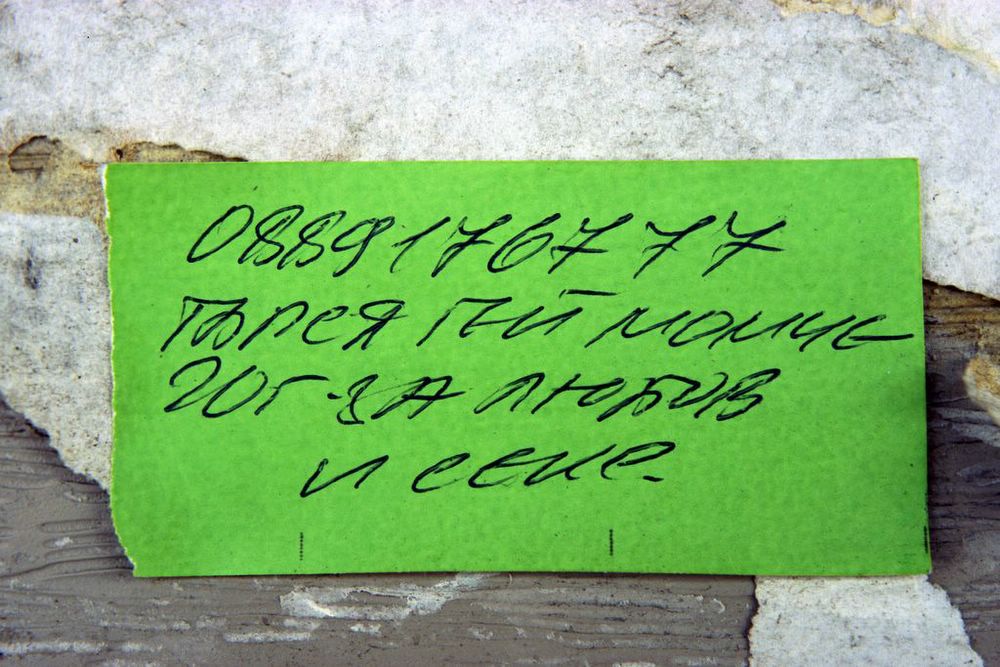 0889176777
търся гей момче
20г-за любов
и секс.